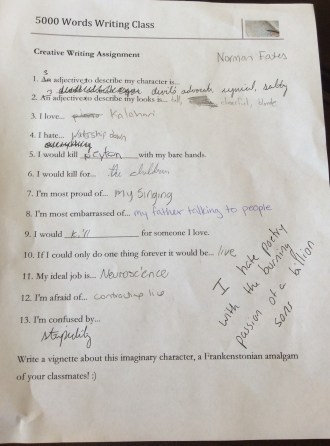 5000 Words Writing Class
Creative Writing Assignment
Norman Foates
1. An 3 adjectives to describe my character is... devil's advocate, cynical, salty
2. An 3 adjectives to describe my looks is... tall, cheerful, blonde
3. I love... Kalahari
4. I hate... Watership down
5. I would kill everything with my bare hands.
6. I would kill for... the children
7. I'm most proud of... my singing
8. I'm most embarrassed of... my father talking to people
9. I would kill for someone I love.
10. If I could only do one thing forever it would be... live
11. My ideal job is... Neuroscience
12. I'm afraid of...
13. I'm confused by...
stupidity
I hate poetry
with the burning
passion of a billion
suns
Write a vignette about this imaginary character, a Frankenstonian amalgam
of your classmates! :)